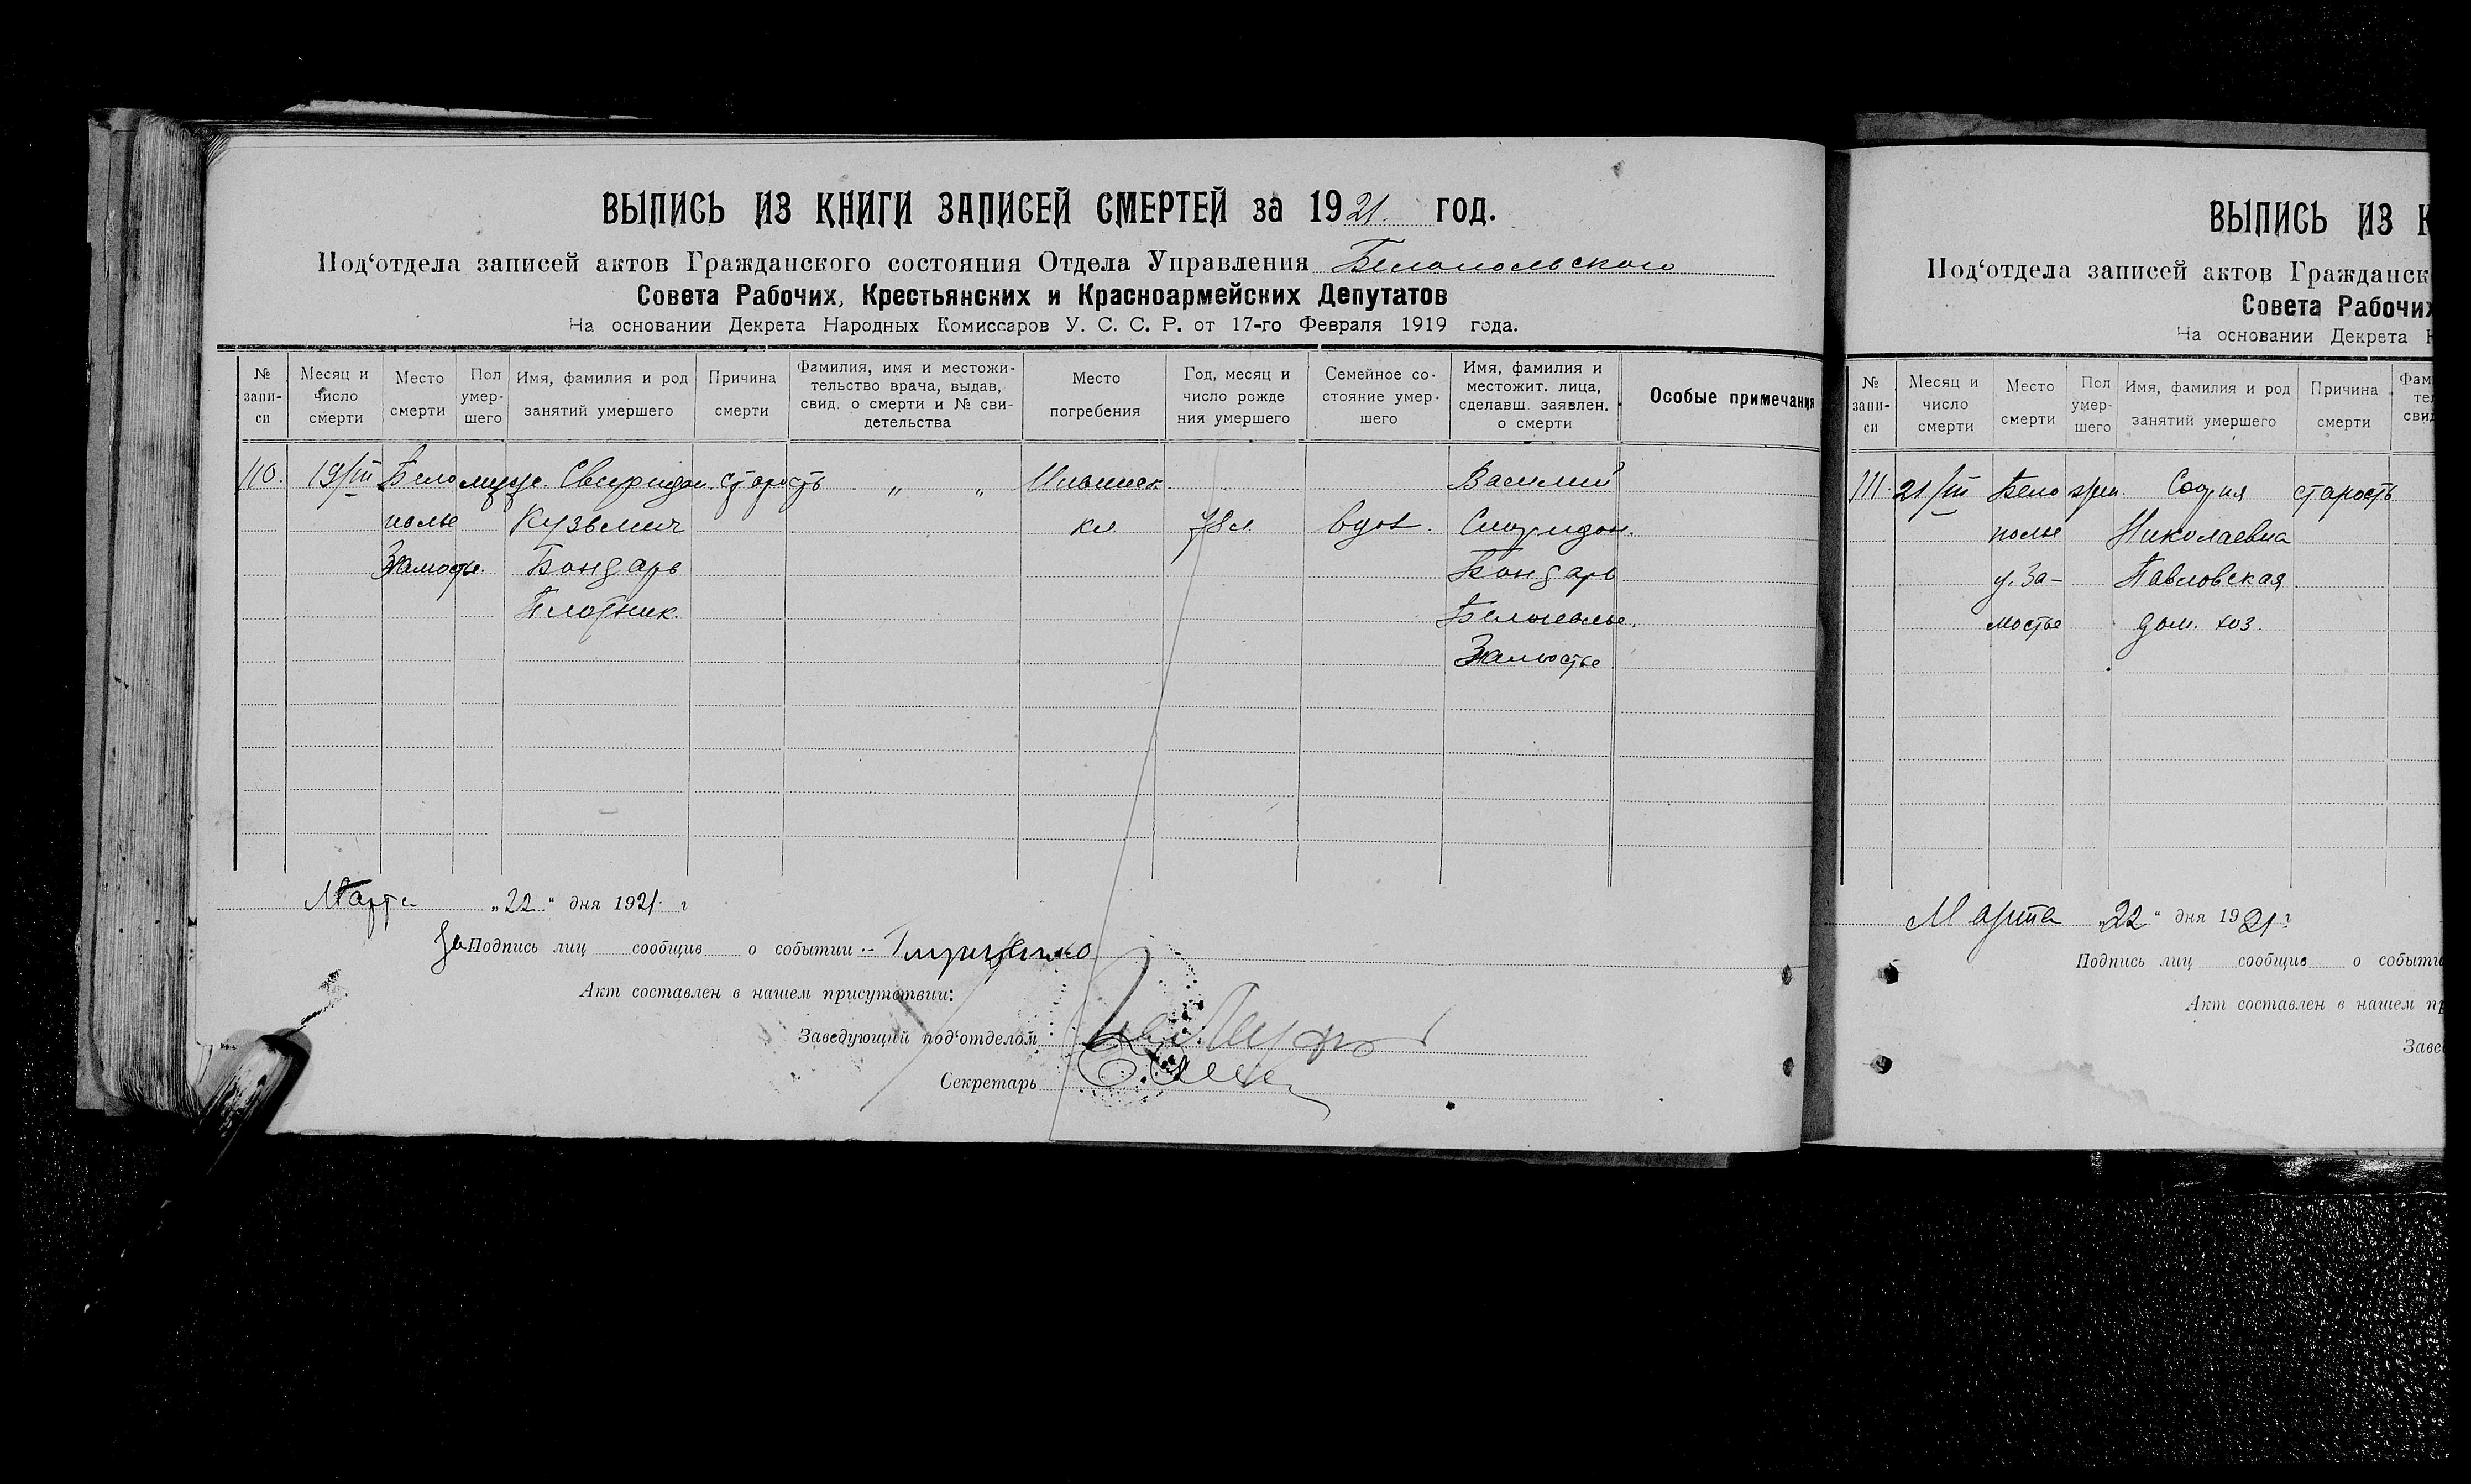 ВЫПИСЬ ИЗ КНИГИ ЗАПИСЕЙ СМЕРТЕЙ за 1921. год.
Под‘отдела записей актов Гражданского состояния Отдела Управления Белопольского
Совета Рабочих, Крестьянских и Красноармейских Депутатов
На основании Декрета Народных Комиссаров У. С. С. Р. от 17-го Февраля 1919 года.
№ запи- си
Месяц и число смерти
Место смерти
Пол умер- шего
Имя, фамилия и род занятий умершего
Причина смерти
Фамилия, имя и местожи- тельство врача, выдав, свид. о смерти и № сви- детельства
Место погребения
Год, месяц и число рожде ния умершего
Семейное со- стояние умер- шего
Имя, фамилия и местожит. лица, сделавш. заявлен. о смерти
Особые примечания
110. 19/III Бело мужс. Свиридон старость „ „ Василий
полье Кузьмич кл. 78 л. вдов. Спиридон.
Замостье. Бондарь Бондарь
Плотник. Белополье.
Замостье
Марта „22“ дня 1921 г
За Подпись лиц сообщив о событии :-
Акт составлен в нашем присутствии:
Заведующий под‘отделом
Секретарь
ВЫПИСЬ ИЗ К
Под‘отдела записей актов Гражданск
Совета Рабочих
На основании Декрета Н
№ запи- си
Месяц и число смерти
Место смерти
Пол умер- шего
Имя, фамилия и род занятий умершего
Причина смерти
Фам тел свид
111. 21/III Бело жен. София старость
полье Николаевна
у. За- Павловская
мостье дом. хоз.
Марта „22“ дня 1921 г
Подпись лиц сообщив о событи
Акт составлен в нашем пр
Завед